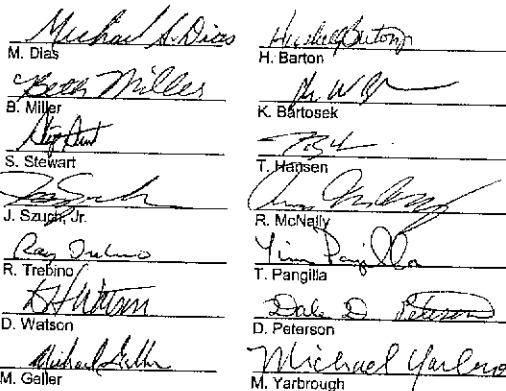 Michael S. Dias
M. Dias
Beth Miller
B. Miller
S. Stewart
J. Szuch, Jr.
Ray Trebino
R. Trebino
D H Watson
D. Watson
Michael Geller
M. Geller
H. Barton
K. Bartosek
T. Hansen
R. McNally
Tim Pangilla
T. Pangilla
Dale D. Peterson
D. Peterson
Michael Yarbro
M. Yarbrough